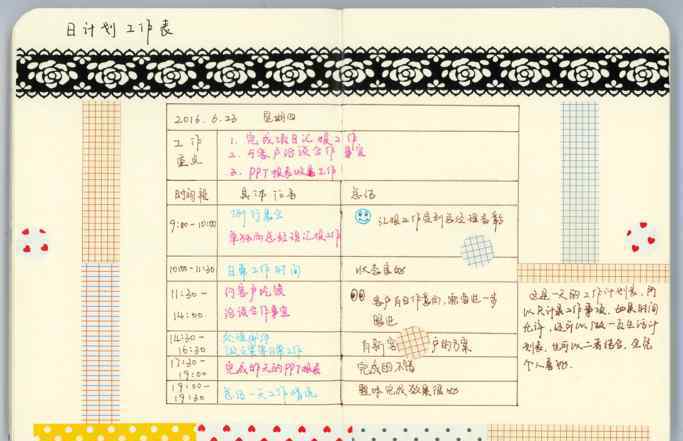 日计划工作表
2016.6.23 星期四
工作
重点
1. 完成项目汇报工作
2. 与客户洽谈合作事宜
3. PPT报表收集工作
时间段 具体行为 总结
9:00-10:00
例行晨会
单独向总经理汇报工作
汇报工作受到总经理
10:00-11:30 日常工作时间 状态良好
11:30-
14:00
约客户吃饭
洽谈合作事宜
客户有合作意向,需跟进一步
14:30-
16:30
处理邮件
有新客 户的方案
17:30-
19:00
完成昨天的PPT报表
完成的不错
19:00-
19:30
总结一天工作情况
整体完成效果很好
这是一天的工作计划表,所
以只计算工作事项,如果时间
允许,还可以做一天生活计
划表,也可以二者结合,全凭
个人喜好。